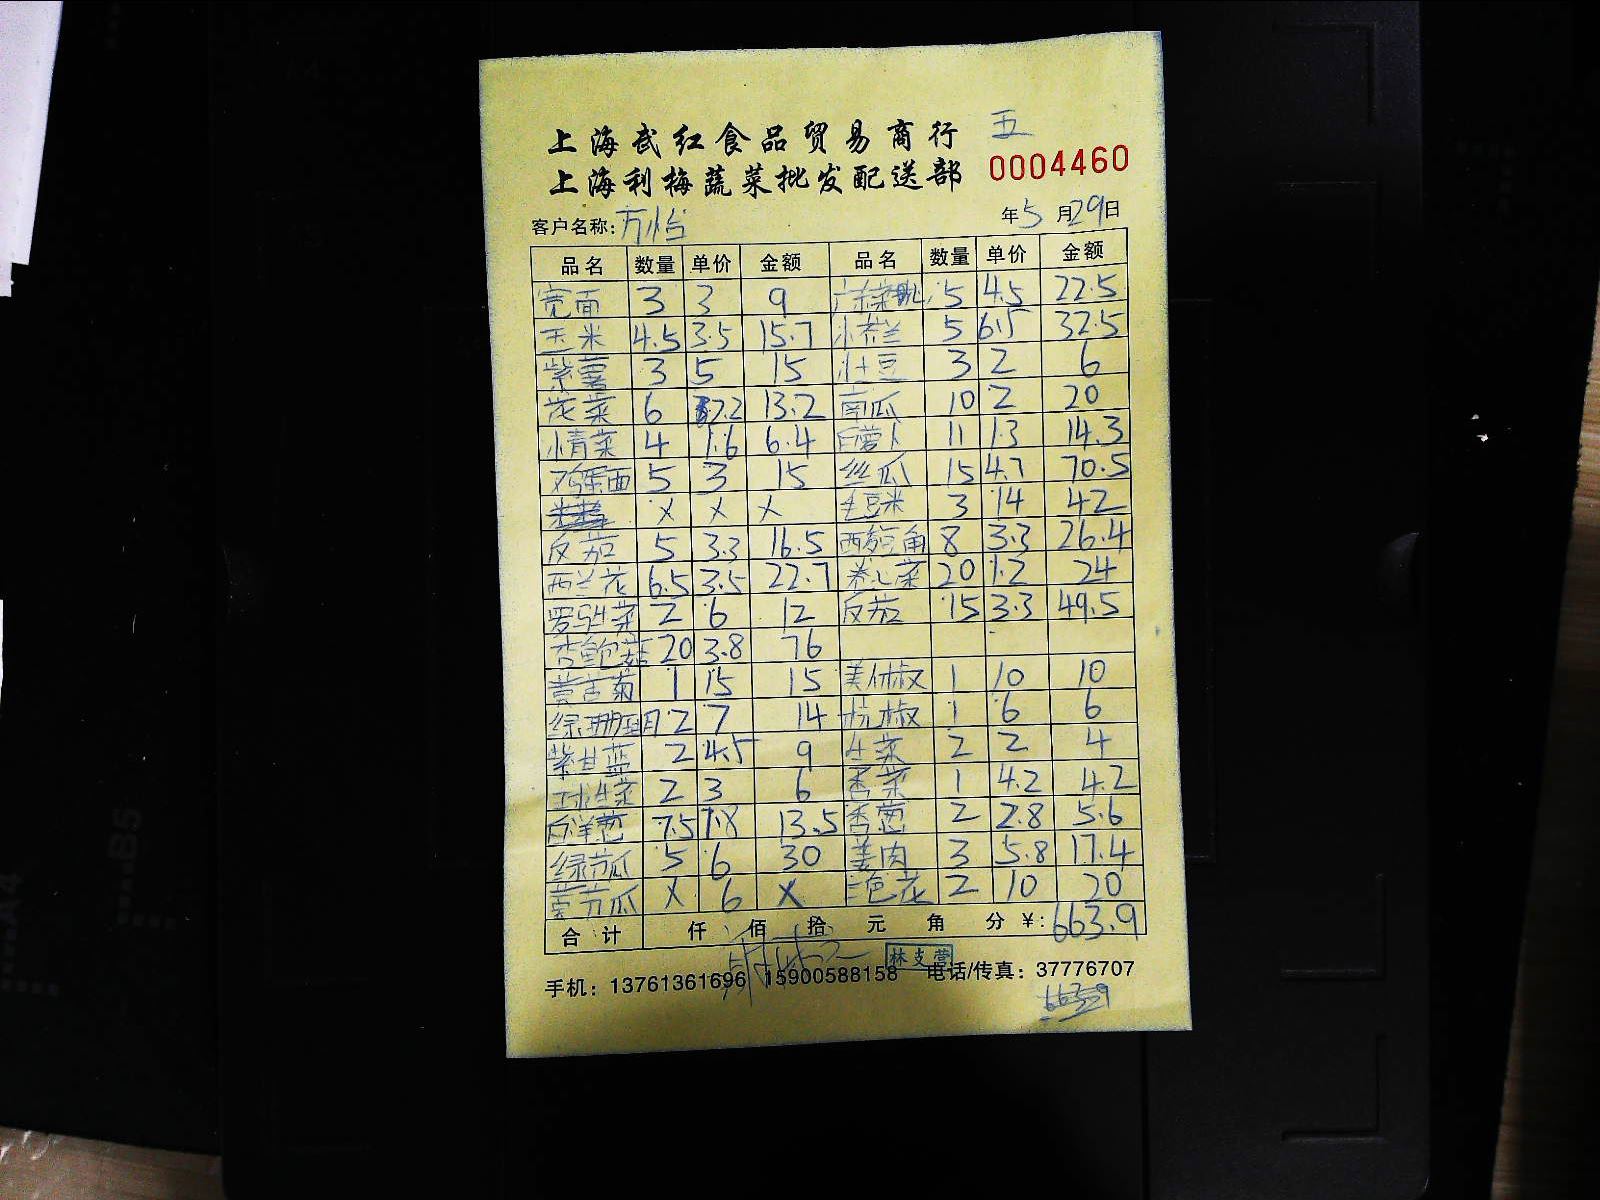 五
上海武红食品贸易商行
上海利梅蔬菜批发配送部 0004460
客户名称:方怡 年5月29日
品名 数量 单价 金额 品名 数量 单价 金额
宽面 3 3 9 5 4.5 22.5
玉米 4.5 3.5 15.7 5 6.5 32.5
紫薯 3 5 15 3 2 6
花菜 6 2.2 13.2 南瓜 10 2 20
小青菜 4 1.6 6.4 白萝卜 11 1.3 14.3
鸡蛋面 5 3 15 丝瓜 15 4.7 70.5
X X X 毛豆米 3 14 42
反茄 5 3.3 16.5 西葫 角 8 3.3 26.4
西兰花 6.5 3.5 22.7 卷心菜 20 1.2 24
罗马生菜 2 6 12 反茄 15 3.3 49.5
杏鲍菇 20 3.8 76
1 15 15 美人椒 1 10 10
绿珊瑚 2 7 14 杭椒 1 6 6
紫甘蓝 2 4.5 9 生菜 2 2 4
球生菜 2 3 6 香菜 1 4.2 4.2
白洋葱 7.5 1.8 13.5 香葱 2 2.8 5.6
绿节瓜 5 6 30 姜肉 3 5.8 17.4
黄节瓜 X 6 X 2 10 20
合计 仟 佰 拾 元 角 分 ¥:663.9
林支营
手机:13761361696 15900588158 电话/传真:37776707